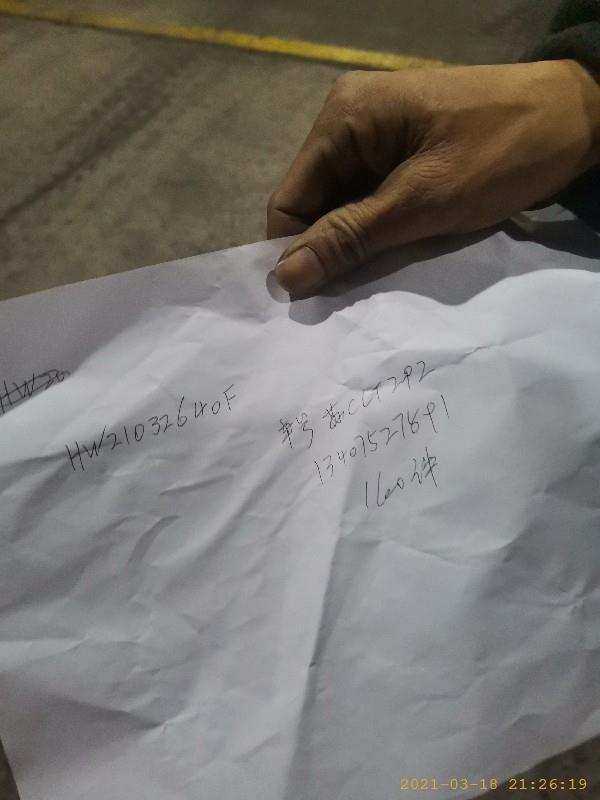 HW20
HW21032640F
车号 苏CLT292
13407527891
1600件
2021-03-18 21:26:19